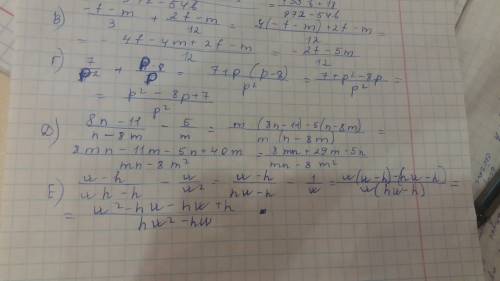 В) (-f-m)/3 + (2f-m)/12 = (4(-f-m)+2f-m)/12 =
= (4f-4m+2f-m)/12 = (-2f-5m)/12
Г) 7/p² + (p-8)/p = (7+p(p-8))/p² = (7+p²-8p)/p² =
= (p²-8p+7)/p²
Д) (8n-11)/(n-8m) - 5/m = (m(8n-11)-5(n-8m))/(m(n-8m)) =
(8mn-11m-5n+40m)/(mn-8m²) = (8mn+29m-5n)/(mn-8m²)
Е) (u-h)/(uh-h) - u/u² = (u-h)/(hu-h) - 1/u = (u(u-h)-(hu-h))/(u(hu-h)) =
= (u²-hu-hu+h)/(hu²-hu)